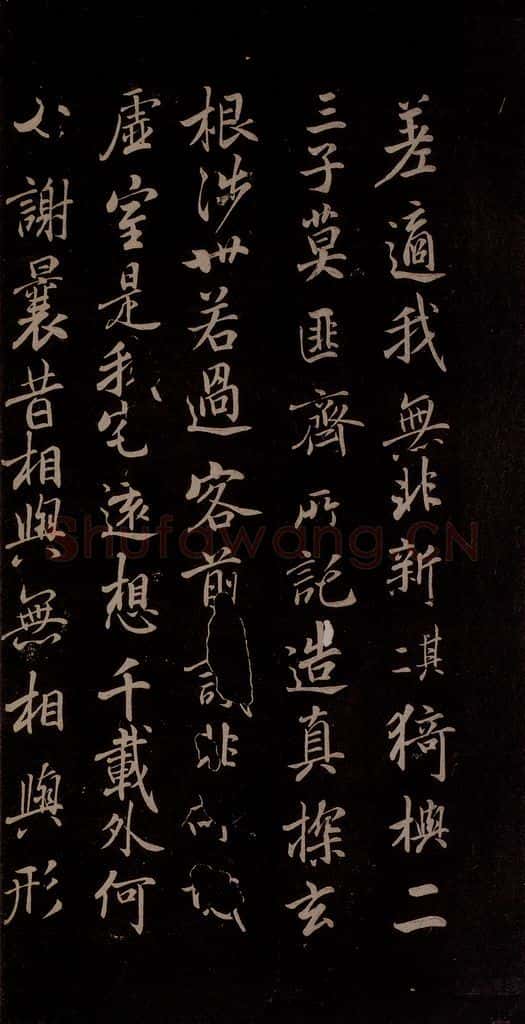 差適我無非新其二猗與二
三子莫匪齊所託造真探玄
根涉世若過客前非
虛室是我宅遠想千載外何
必謝曩昔相與無相與形
Shufawang.CN